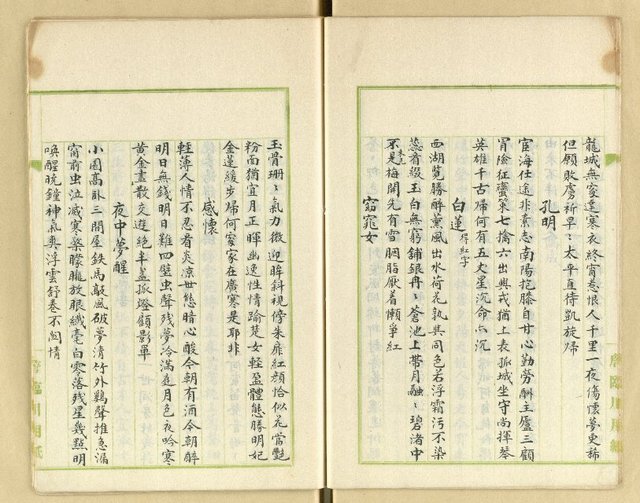 龍城無家送寒衣終宵愁恨人千里一夜傷懷夢史稀
但願敗虜祈早〻太平直待凱旋歸
孔明
宦海仕途非素志南陽抱膝自甘心勤勞酬主廬三顧
冒險征蠻策七擒六出興戎猶上表孤城坐守尚揮琴
英雄千古歸何有五丈星沉命亦沉
白蓮 限紅字
西湖覽勝醉薰風出水荷花孰與同色若浮霜污不染
蕊看綴玉白無窮鋪銀冉〻蒼池上帶月融〻碧渚中
不是梅開先有雪胭脂厭着懶爭紅
窈窕女
玉骨珊〻氣力微迎眸斜視傍朱扉紅顔恰似花當艷
粉面猶宜月正暉幽逸性情踰楚女輕盈體態勝明妃
金蓮緩步歸何處家在廣寒是耶非
感懷
輕薄人情不忍看炎涼世態暗心酸今朝有酒今朝醉
明日無錢明日難四壁虫聲殘夢冷滿庭月色夜吟寒
黄金盡散交遊絕半盞孤燈顧影單
夜中夢醒
小園高臥三間屋鉄馬敲風破夢清竹外鷄聲推急漏
窗前虫泣減寒聲朦朧放眼纖毫白零落殘星幾點明
喚醒晓鐘神氣爽浮雲舒卷不関情